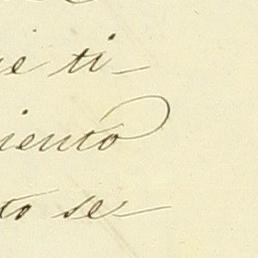 ue ti-
iento
to se-